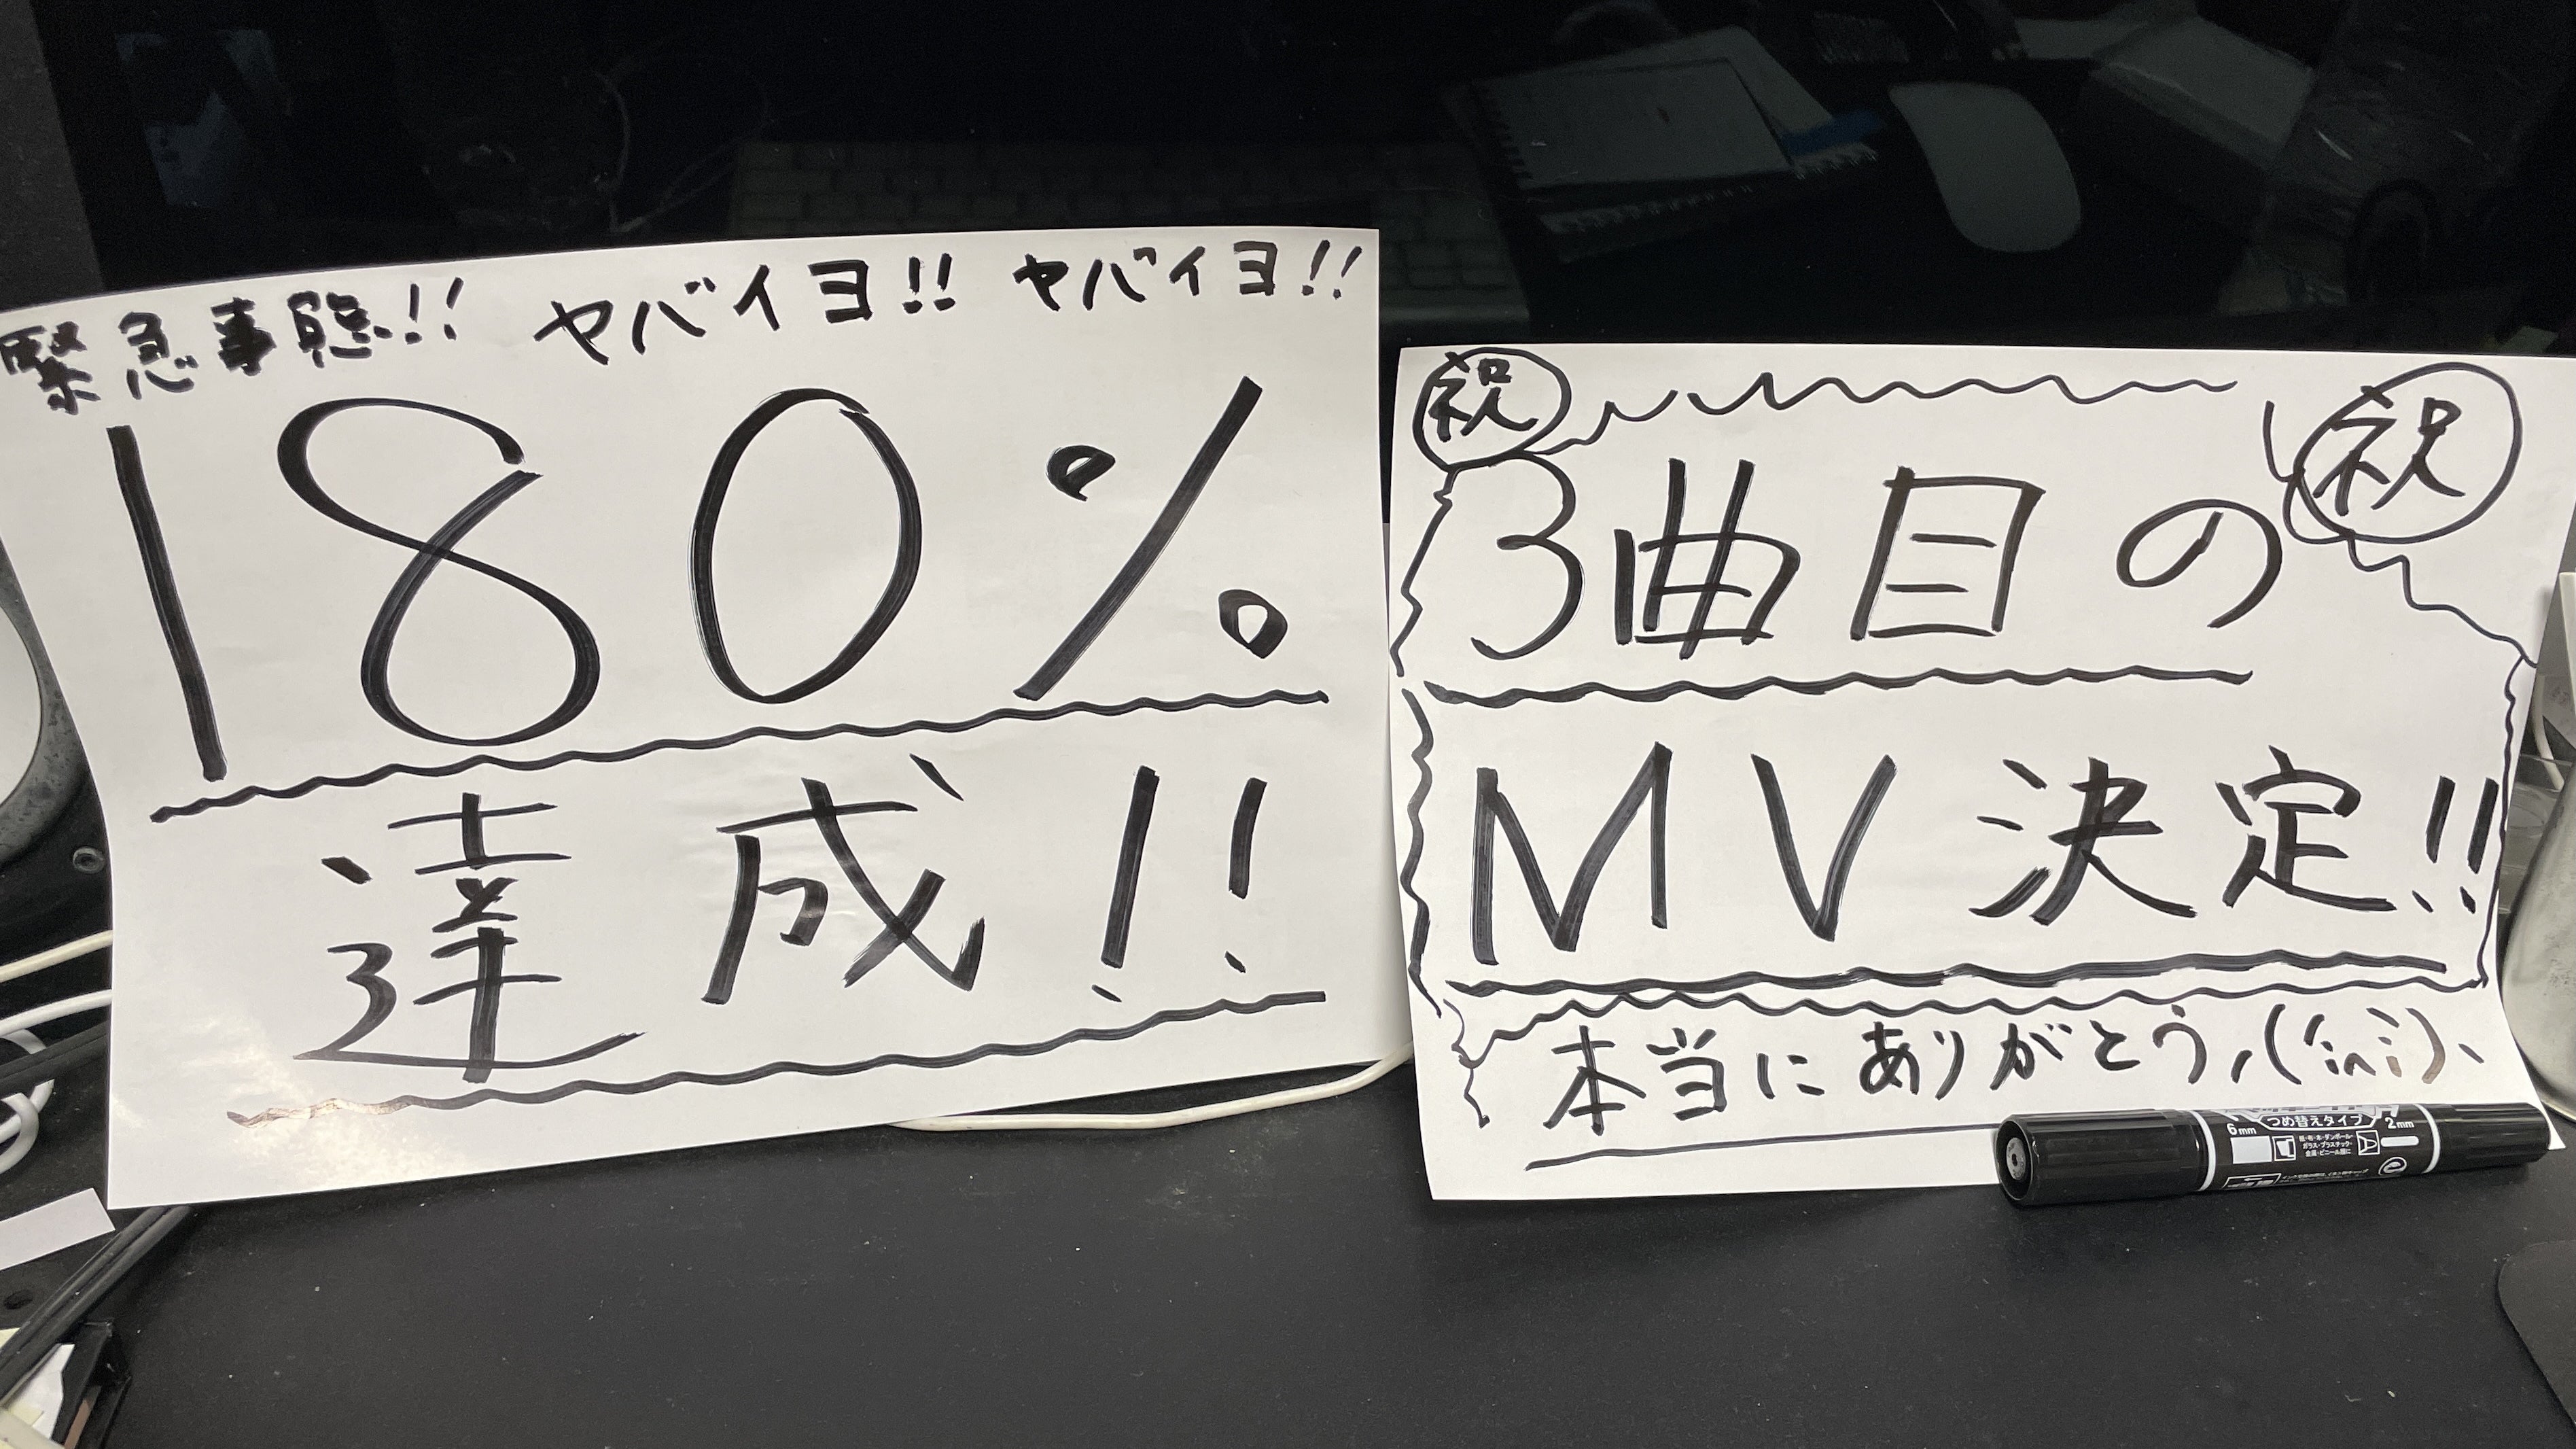 緊急事態!! ヤバイヨ!! ヤバイヨ!!
180%
達成!!
祝
祝
3曲目の
MV決定!!
本当にありがとう
6mm
つめ替えタイプ
2mm